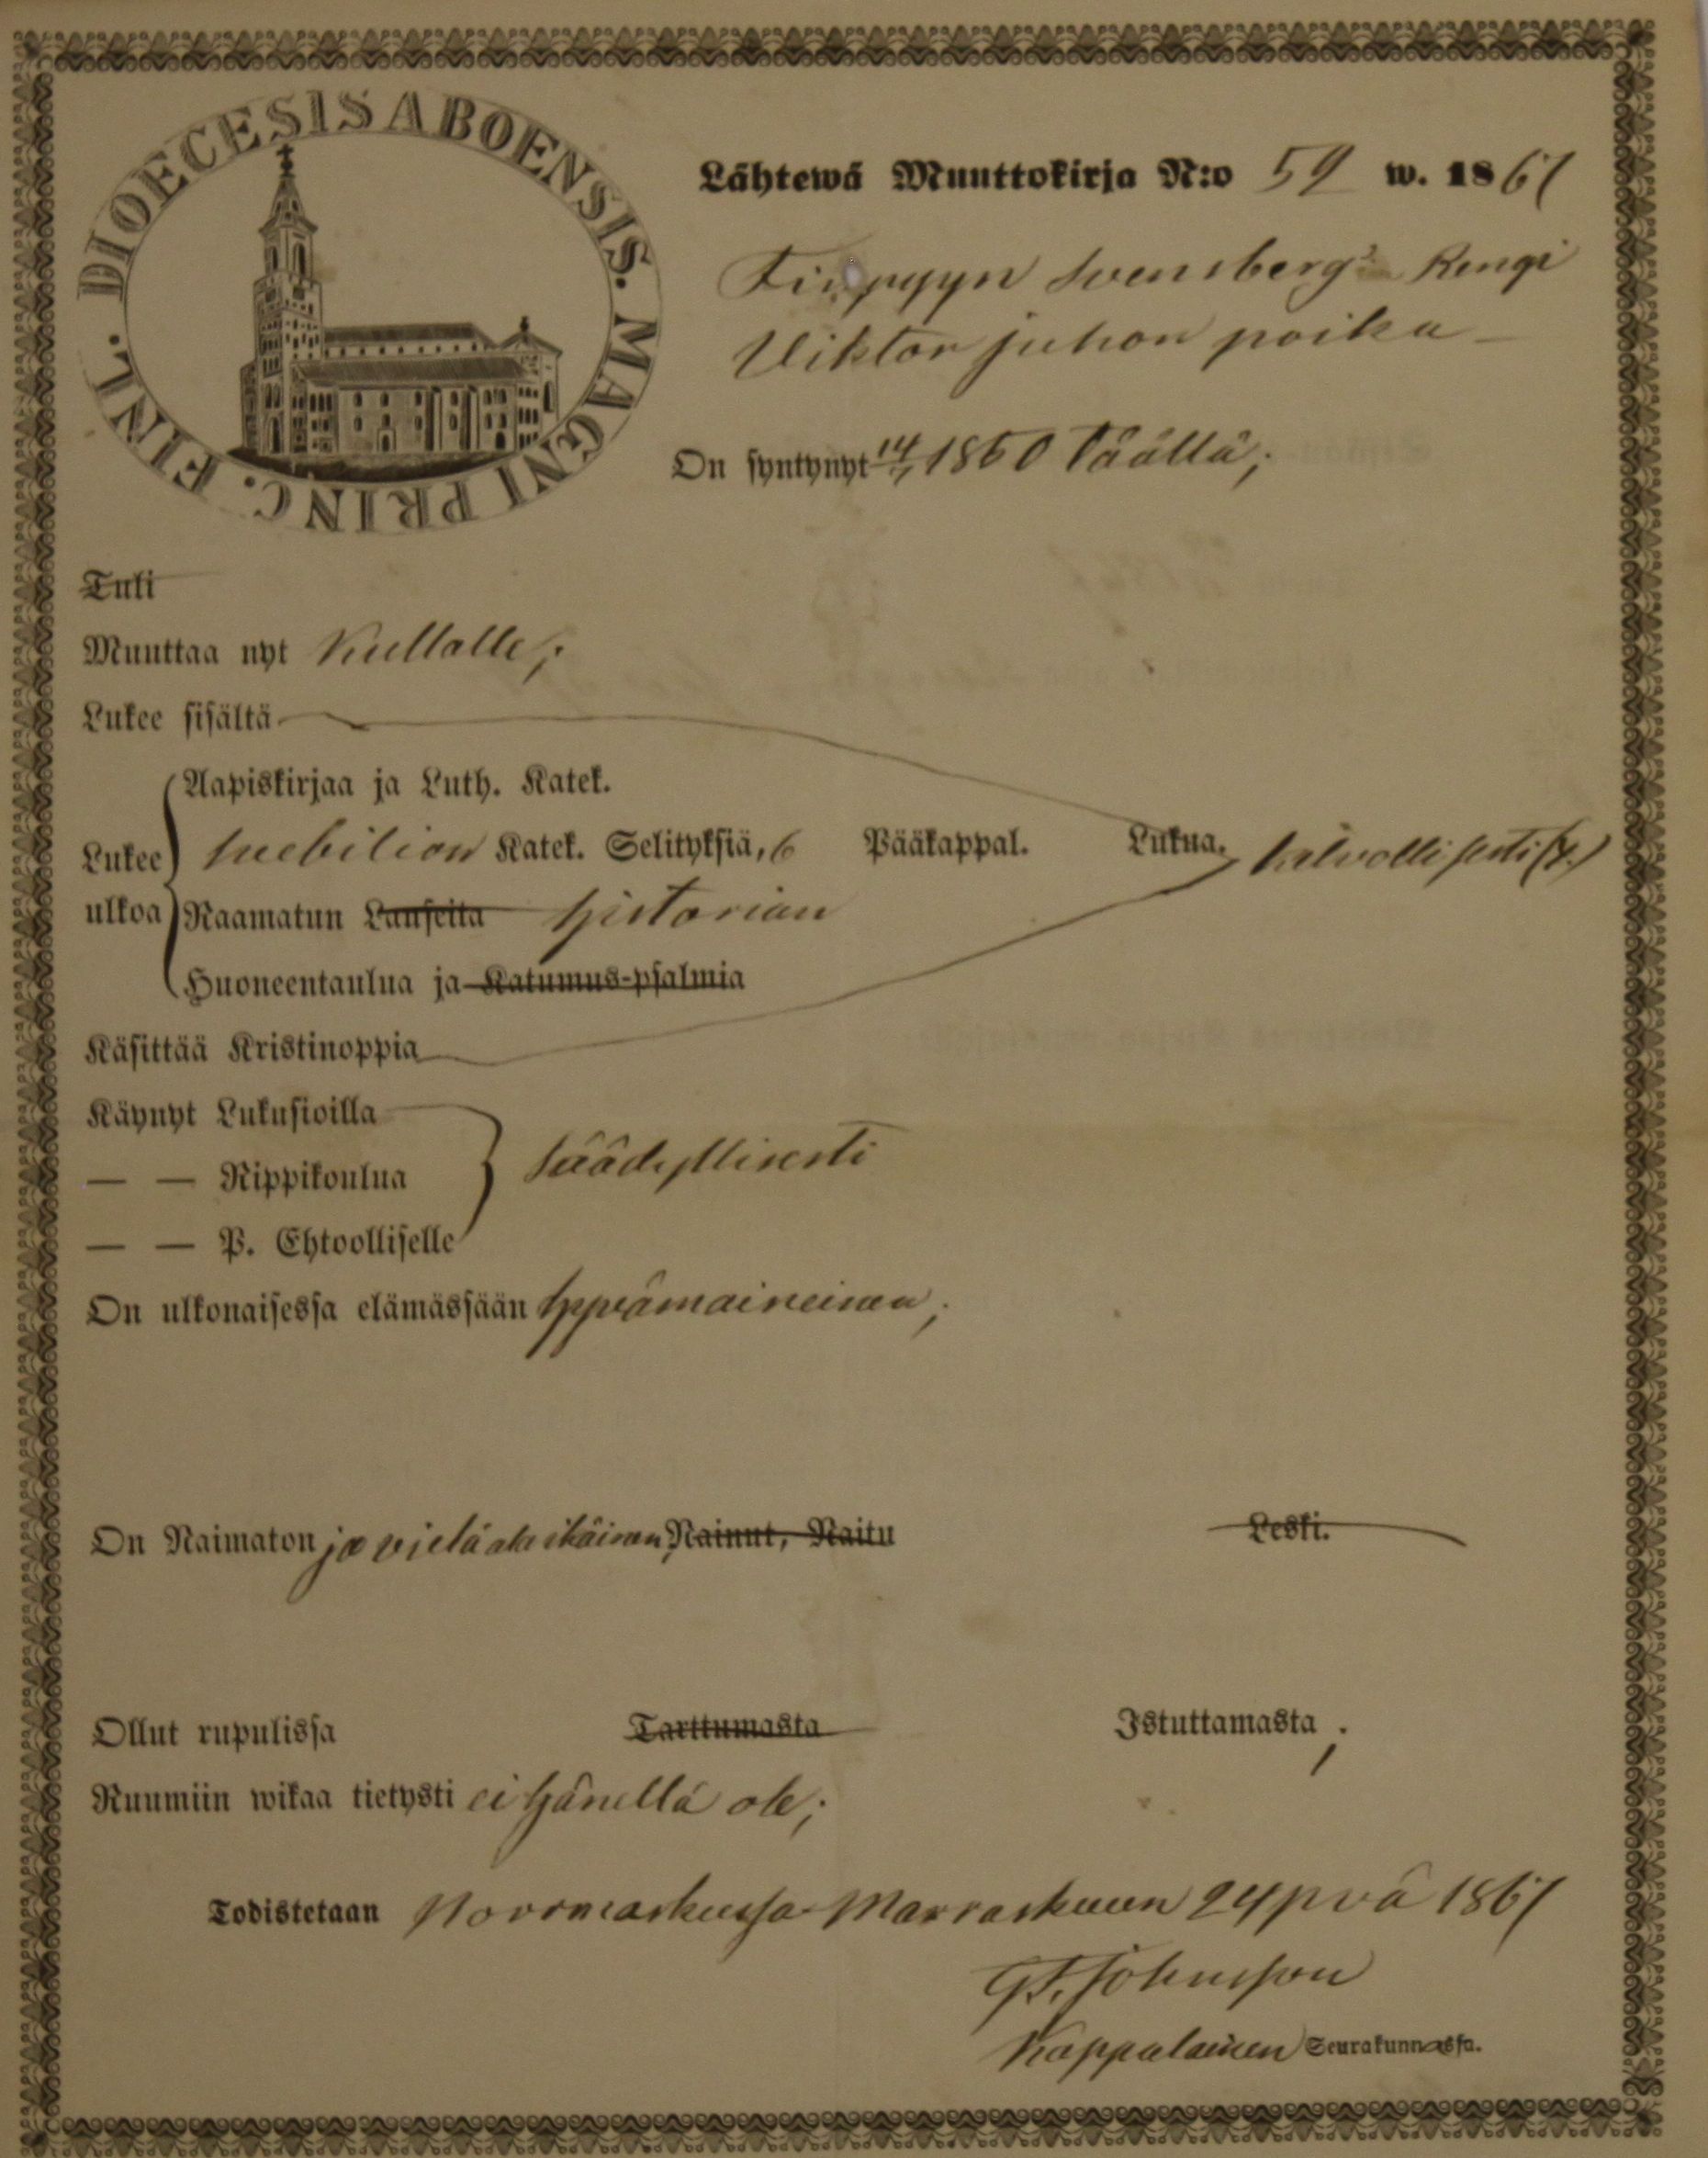 DIOECESIS ABOENSIS. MAGNI PRINC. FINL.
Lähtewä Muuttokirja N:o 59 w. 1867
Svensberg Rengi
Viktor juhon poika
On syntynyt 14/7 1850 täällä;
Tuli
Muuttaa nyt Kullalle;
Lukee sisältä
Aapiskirjaa ja Luth. Katek.
Lukee Katek. Selityksiä, 6 Pääkappal. Lukua.
ulkoa Raamatun Lauseita historian
Huoneentaulua ja Katumus-psalmia
Käsittää Kristinoppia
Käynyt Lukusioilla
— — Rippikoulua säädyllisesti
— — P. Ehtoolliselle
On ulkonaisessa elämässään hyvämaineinen;
On Naimaton ja vielä ala ikäinen, Nainut, Naitu Leski.
Ollut rupulissa Tarttumasta Istuttamasta;
Ruumiin wikaa tietysti ei hänellä ole;
Todistetaan Noormarkussa Marraskuun 24 pvä 1867
Kappalainen Seurakunnassa.